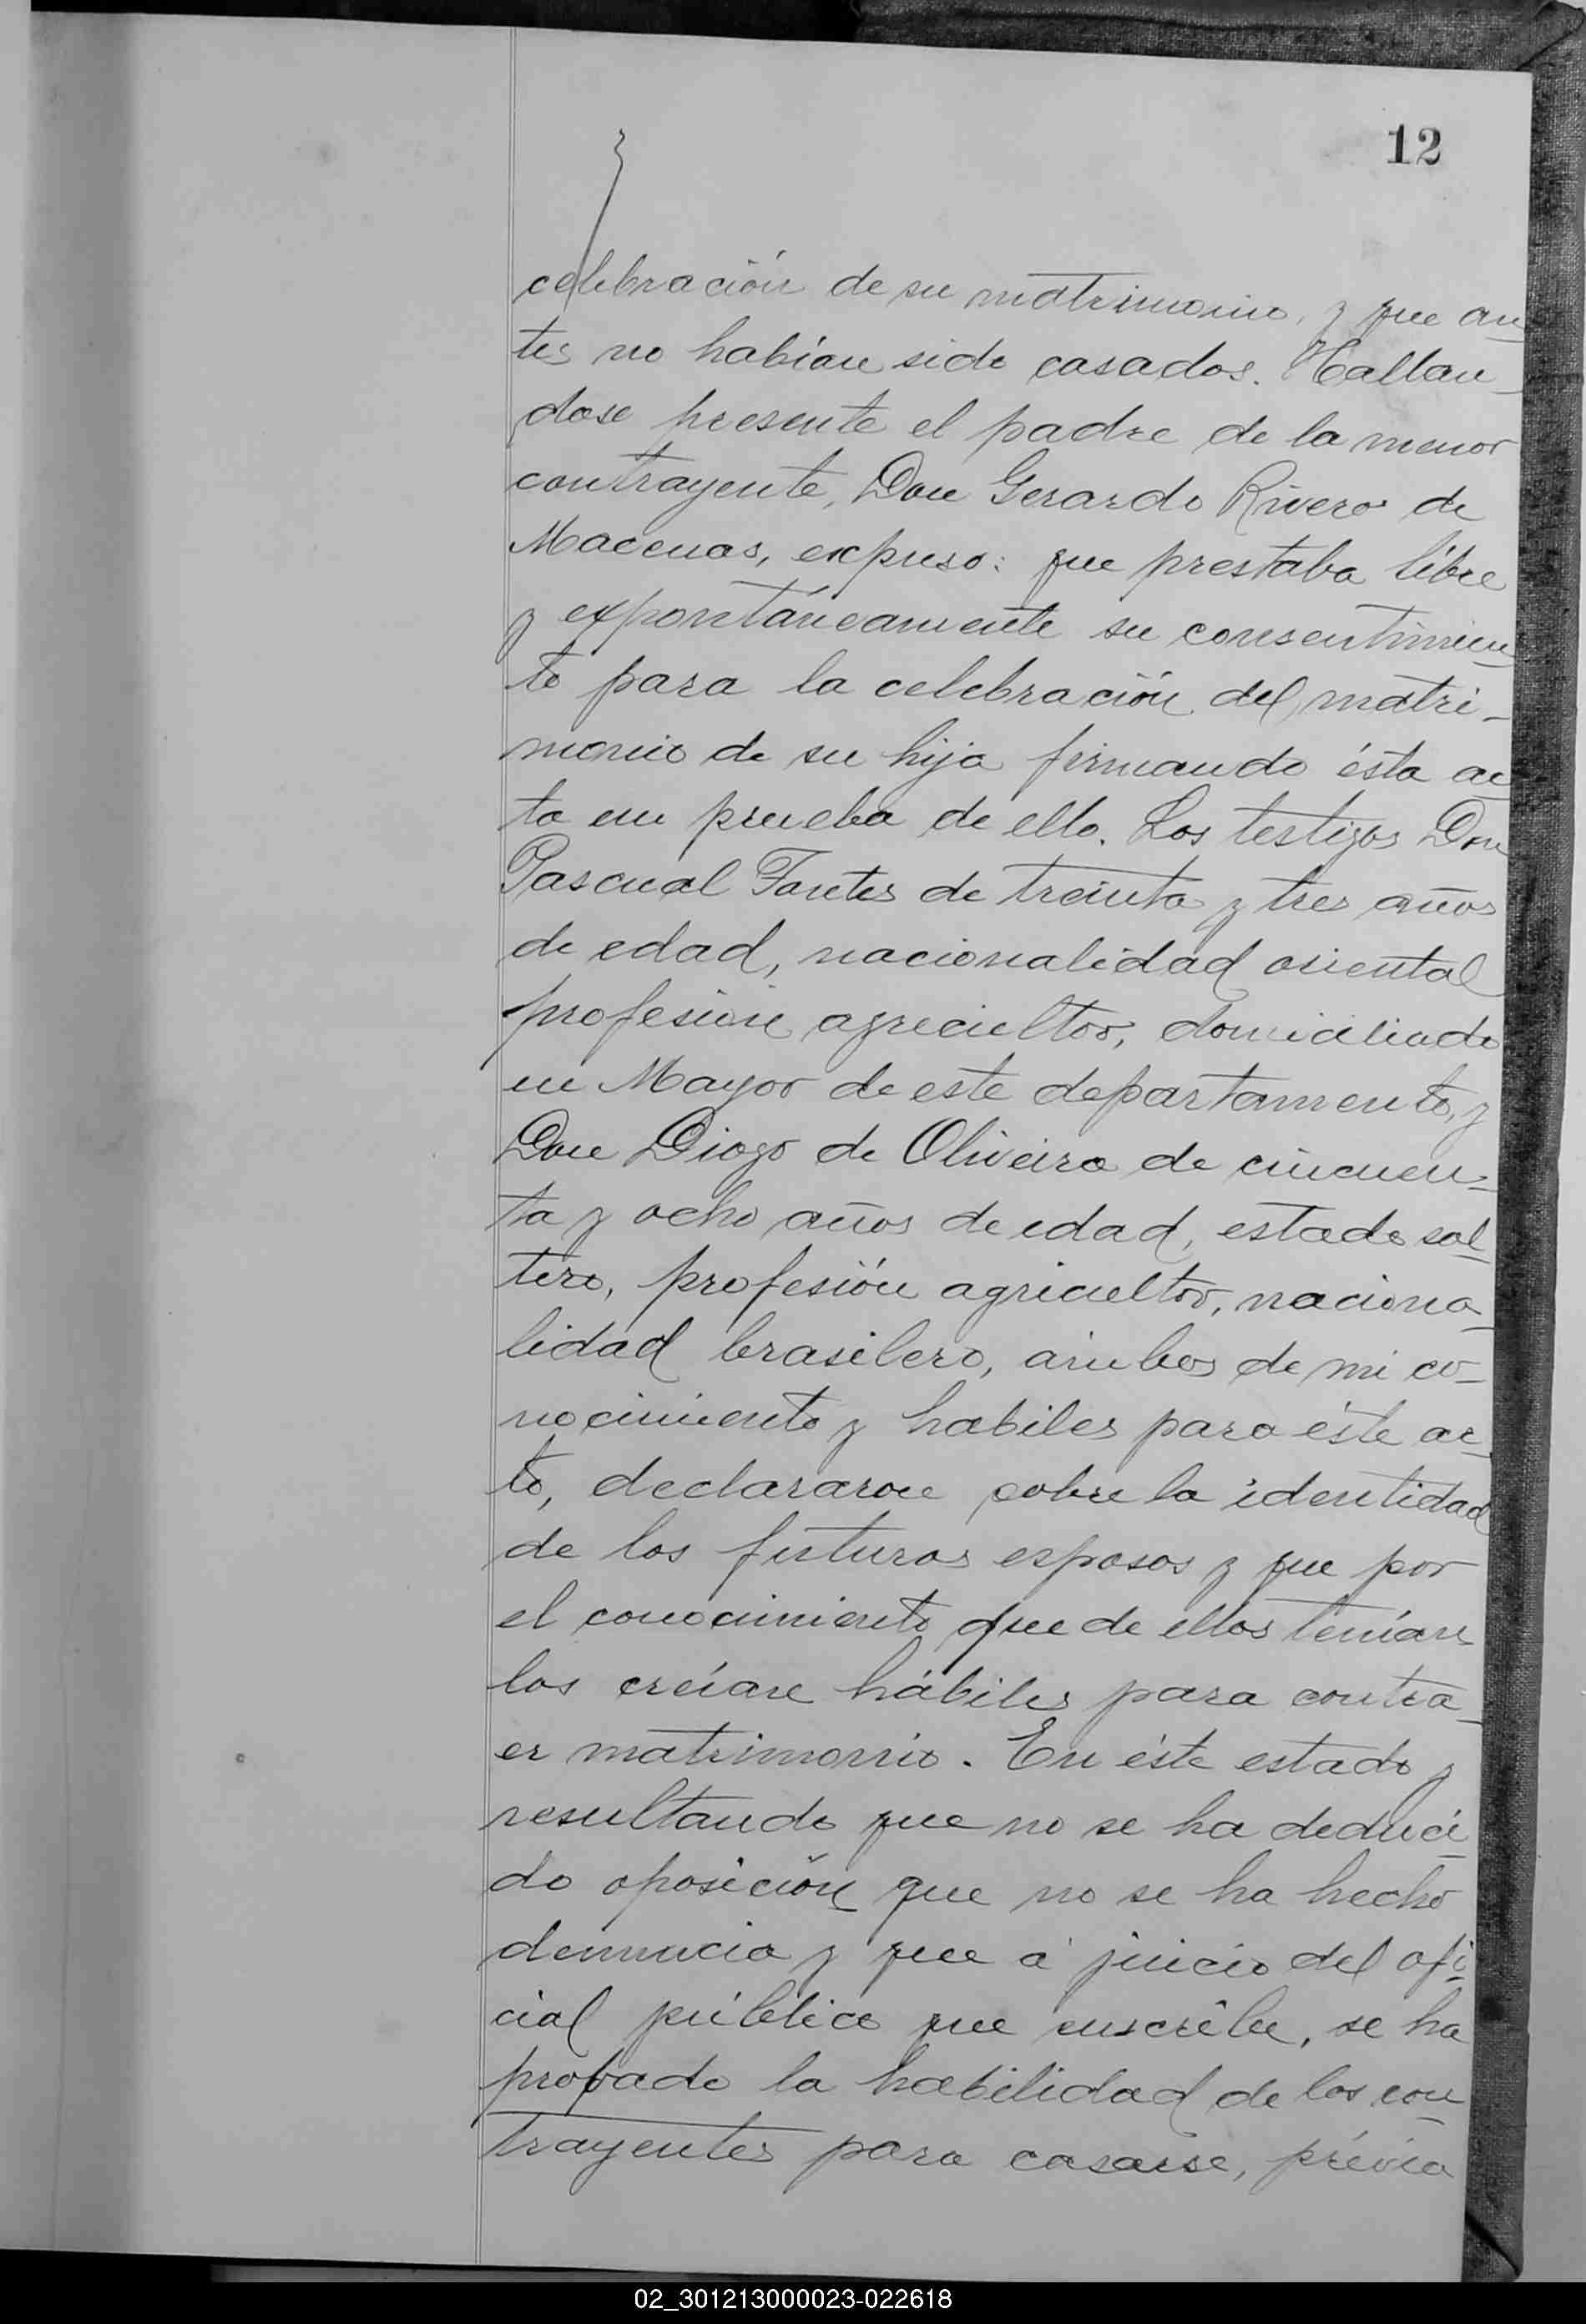 12
celebración de su matrimonio, y que an
tes no habían sido casados. Hallan_
dose presente el padre de la menor
contrayente, Don Gerardo Rivero de
Macenas, expuso: que prestaba libre
y expontáneamente su consentimien
to para la celebración del matri_
monio de su hija firmando ésta ac
ta en prueba de ello. Los testigos Don
Pascual Fontes de treinta y tres años
de edad, nacionalidad oriental
profesión agricultor, domiciliado
en Mayor de este departamento, y
Don Diogo de Oliveira de cincuen_
ta y ocho años de edad, estado sol
tero, profesión agricultor, naciona_
lidad brasilero, ambos de mi co_
nocimiento y habiles para éste ac_
to, declararon sobre la identidad
de los futuros esposos y que por
el conocimiento que de ellos tenían
los creían hábiles para contra_
er matrimonio. En éste estado y
resultando que no se ha deduci_
do oposición que no se ha hecho
denuncia y que á juicio del ofi
cial público que suscribe, se ha
probado la habilidad de los con
trayentes para casarse, prévia
02_301213000023-022618